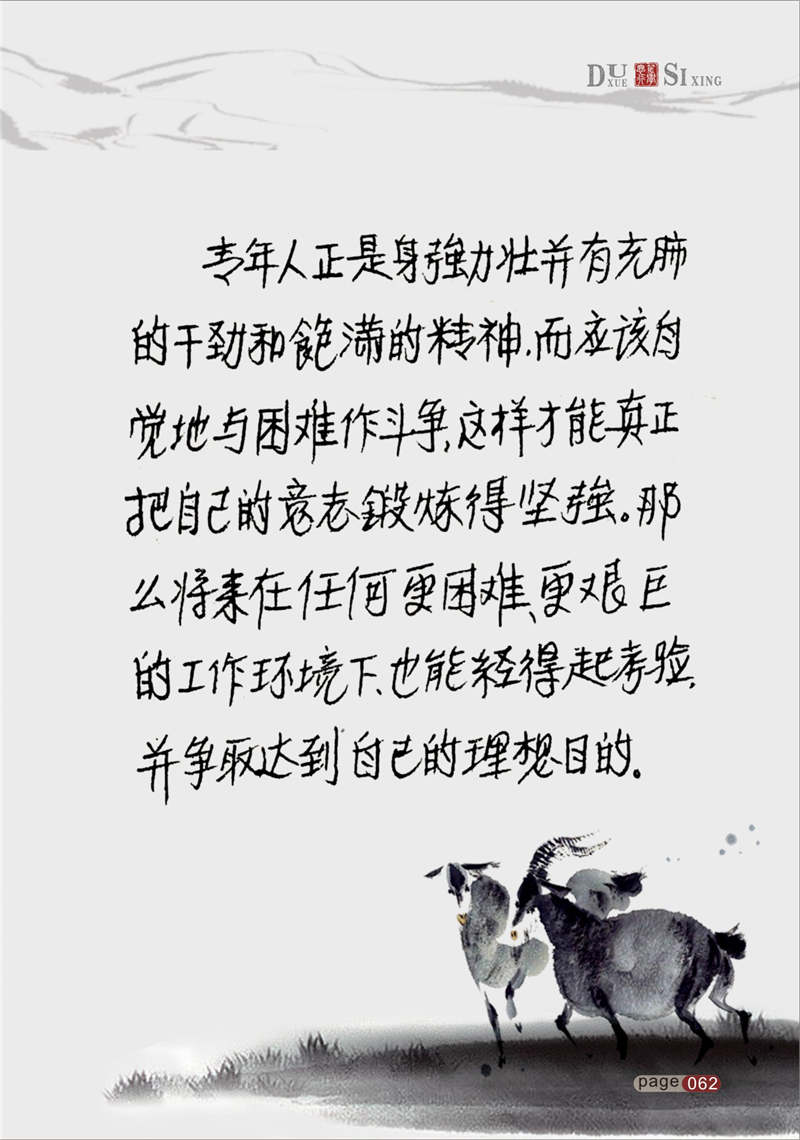 DU XUE SI XING
青年人正是身強力壮并有充肺
的干劲和饱满的精神.而应该自
觉地与困难作斗争,这样才能真正
把自己的意志鍛炼得坚強。那
么将来在任何更困难、更艰巨
的工作环境下、也能经得起考验,
并争取达到自己的理想目的。
page 062